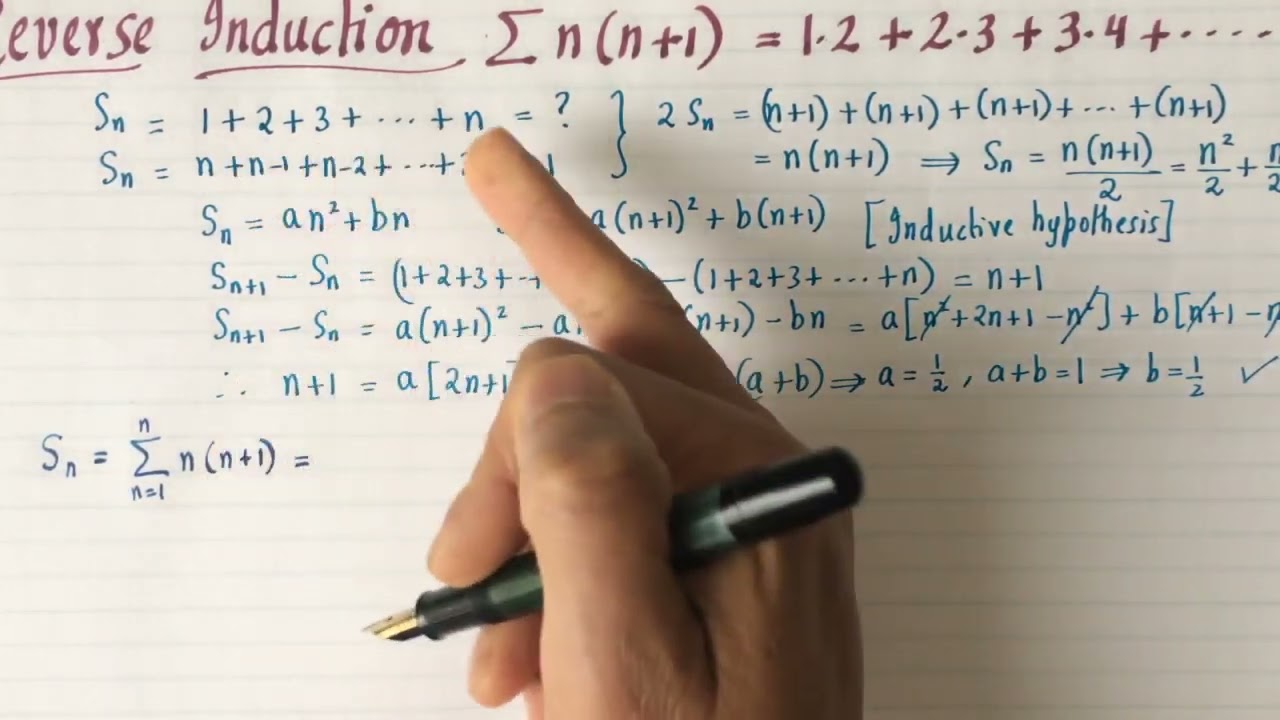 everse Induction ∑ n(n+1) = 1·2 + 2·3 + 3·4 + ····
Sₙ = 1 + 2 + 3 + ··· + n = ? } 2 Sₙ = (n+1) + (n+1) + (n+1) + ··· + (n+1)
Sₙ = n + n-1 + n-2 + ··· + 1 = n(n+1) ⟹ Sₙ = n(n+1)/2 = n²/2 + n/2
Sₙ = an² + bn a(n+1)² + b(n+1) [Inductive hypothesis]
Sₙ₊₁ − Sₙ = (1+2+3+ ) − (1+2+3+ ··· +n) = n+1
Sₙ₊₁ − Sₙ = a(n+1)² − a (n+1) − bn = a[n²+2n+1−n²] + b[n+1−n
∴ n+1 = a[2n+1] (a+b) ⟹ a = 1/2 , a+b = 1 ⟹ b = 1/2 ✓
Sₙ = ∑ₙ₌₁ⁿ n(n+1) =